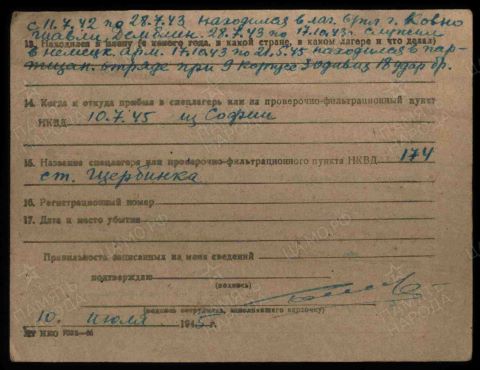 с 11.7.42 по 28.7.43 находился в лаг. г. Ковно
Шавли, Демблин. 28.7.43 по 17.10.43 г. служил
13. Находился в плену (с какого года, в какой стране, в каком лагере и что делал)
в немецк. арм. 17.10.43 по 21.5.45 находился в пар-
тизан. отряде при 9 корпусе 3 дивиз 18 удар бр.
14. Когда и откуда прибыл в спецлагерь или на проверочно-фильтрационный пункт
НКВД 10.7.45 из Софии
15. Название спецлагеря или проверочно-фильтрационного пункта НКВД 174
ст. Щербинка
16. Регистрационный номер
17. Дата и место убытия
Правильность записанных на меня сведений
подтверждаю
(подпись)
(подпись сотрудника, заполнявшего карточку)
10. июля 1945 г.